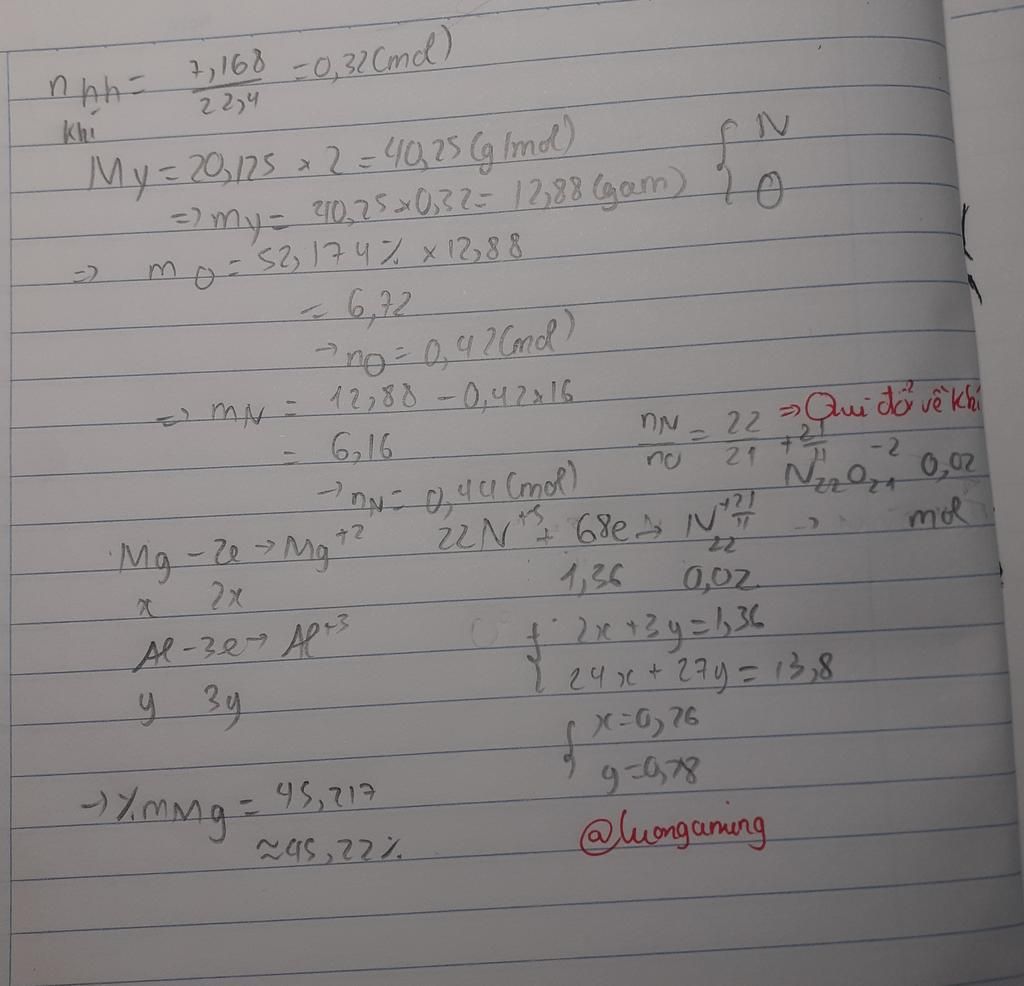 n hh khí = 7,168 / 22,4 = 0,32 (mol)
My = 20,125 x 2 = 40,25 (g/mol) { N
=> my = 40,25 x 0,32 = 12,88 (gam) O
=> mO = 52,174% x 12,88
= 6,72
→ nO = 0,42 (mol)
=> mN = 12,88 - 0,42 x 16
= 6,16
→ nN = 0,44 (mol)
nN / nO = 22 / 21 => Qui đổi về khí
N22 +21/11 O21 -2 0,02 mol
Mg - 2e → Mg+2 22N+5 + 68e → N22 +21/11 →
x 2x 1,36 0,02
Al - 3e → Al+3 { 2x + 3y = 1,36
y 3y 24x + 27y = 13,8
{ x = 0,26
y = 0,28
→ %mMg = 45,217
≈ 45,22%
@luongaming